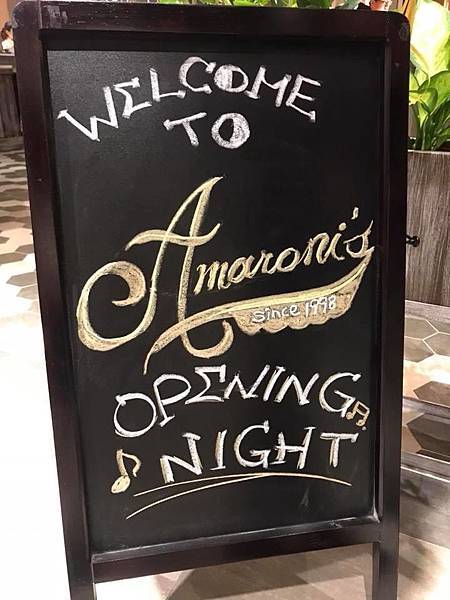 WELCOME
TO
Amaroni's
since 1998
OPENING
NIGHT